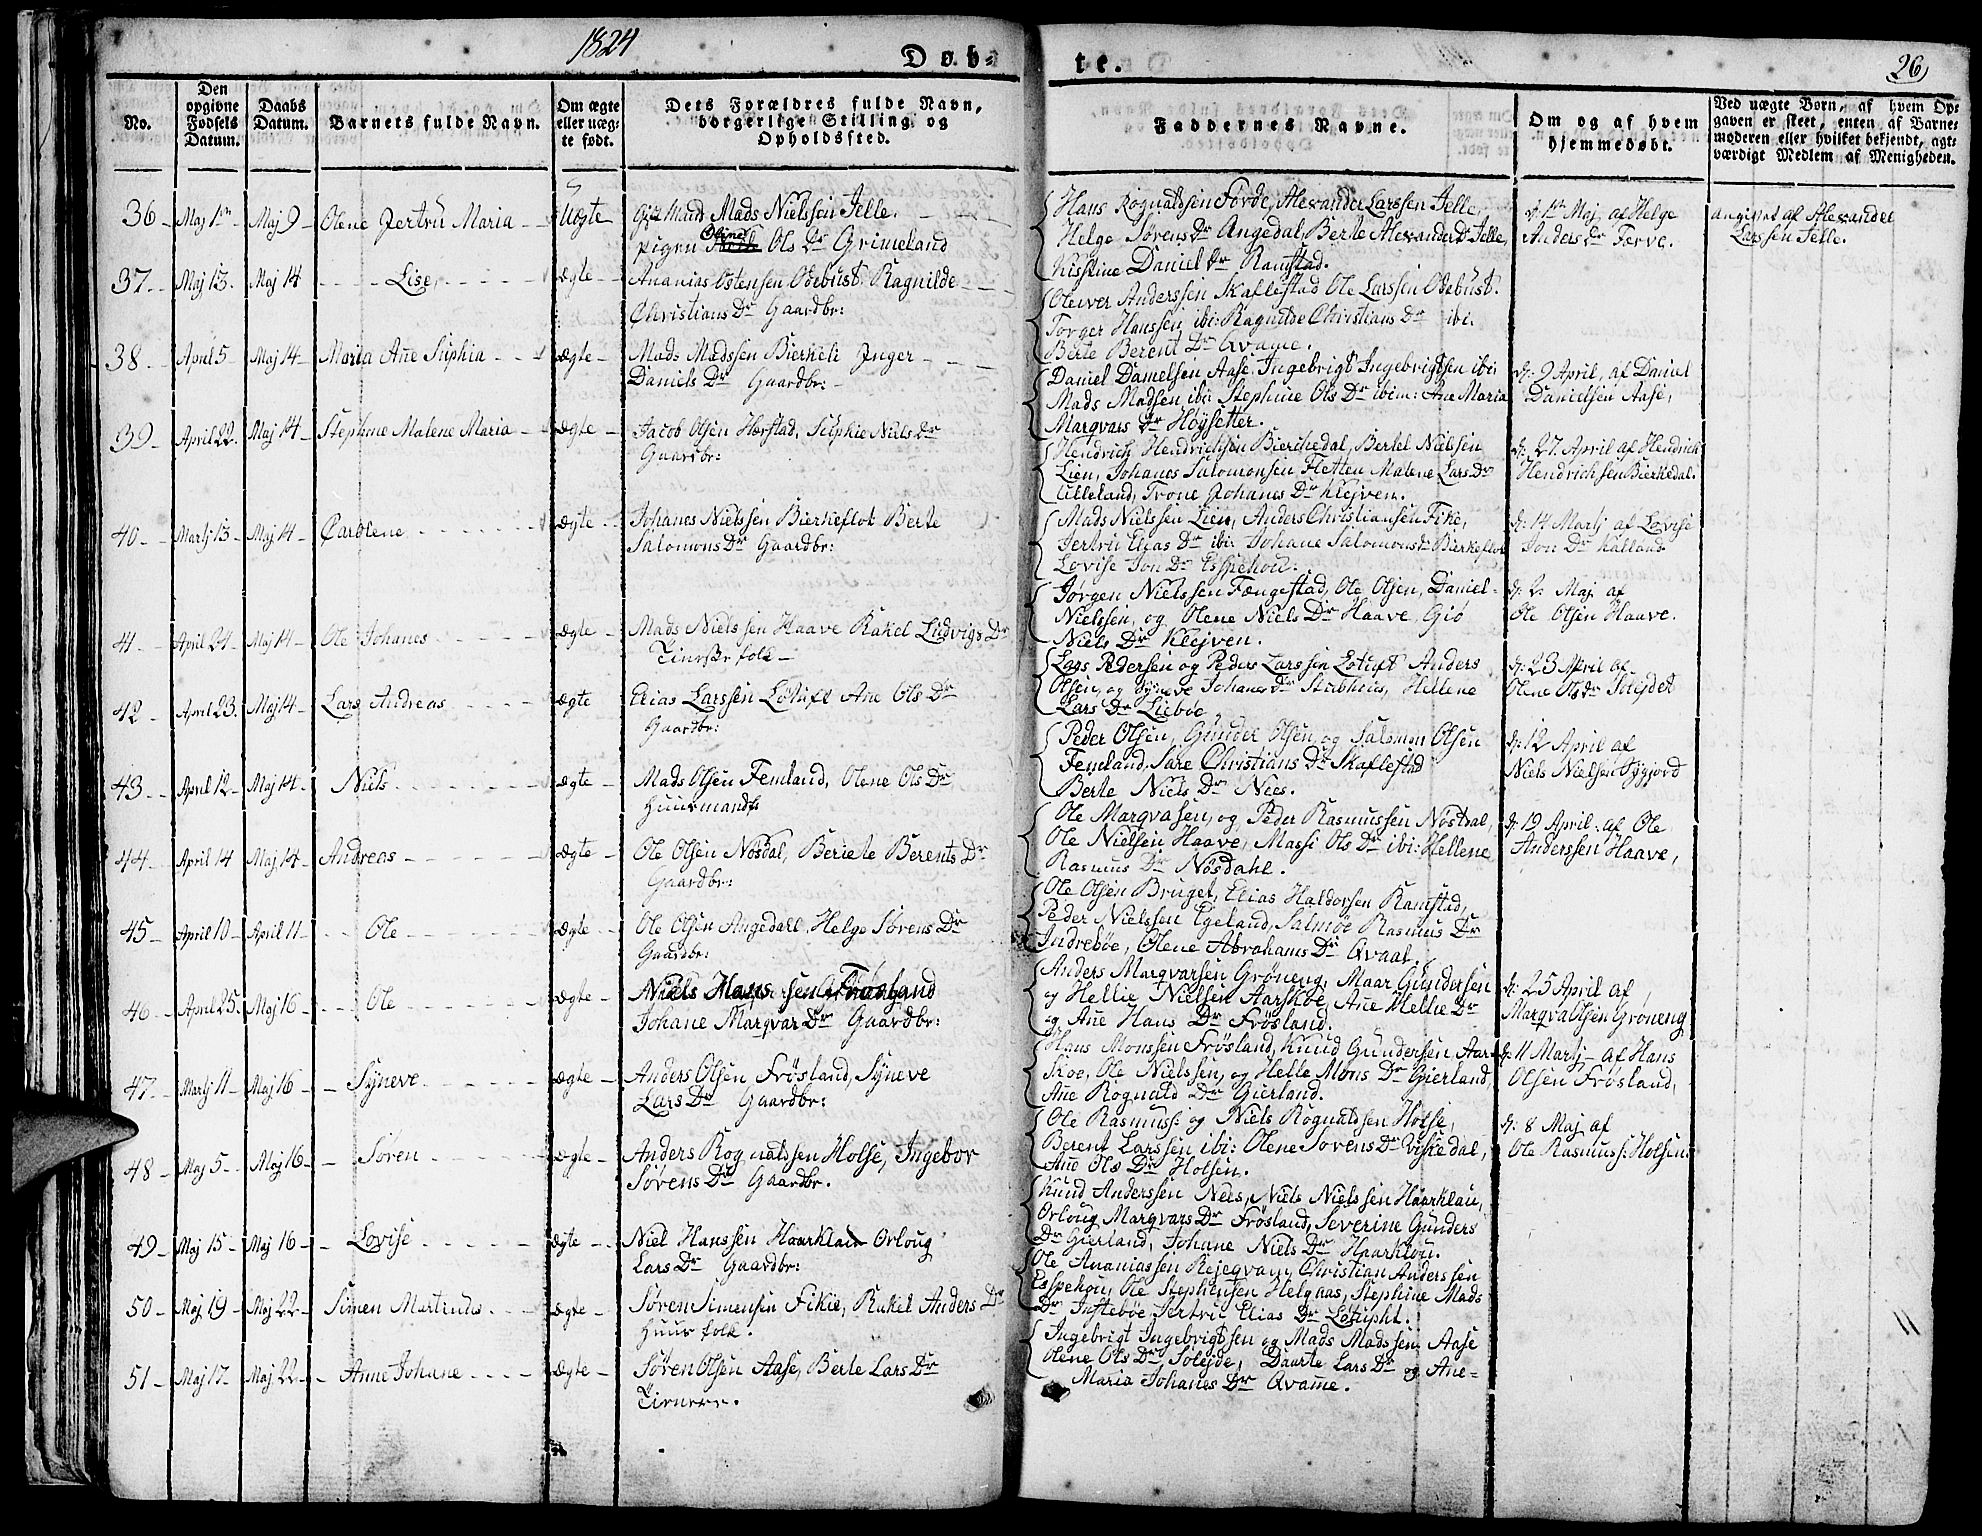 1824
Døb-
te.
26
No.
Den opgivne Fødsels Datum.
Daabs Datum.
Barnets fulde Navn.
Om ægte eller uægte født.
Dets Forældres fulde Navn, borgerlige Stilling og Opholdssted.
Faddernes Navne.
Om og af hvem hjemmedøbt.
Ved uægte Børn, af hvem Opgaven er skeet, enten af Barnemoderen eller hvilket bekjendt, agtværdigt Medlem af Menigheden.
36 - Maj 1ste Maj 9 - Olene Jertru Maria - Uægte - Gift Mand Mads Nielssen Jelle.
pigen Oline Ols Dr Grimeland
Hans Rognaldsen Førde, Alexander Larssen Jelle,
Helge Sørens Dr Angedal, Berte Alexanders Dr Jelle,
Kirstine Daniel Dr Ramstad.
d: 1ste Maj af Helge
Anders Dr Færve.
angivet af Alexander
Larssen Jelle.
37 - Maj 13. Maj 14 - Lise, - ægte - Ananias Ostensen Odebust, Ragnilde
Christians Dr Gaardbr:
Oleiver Anderssen Skaflestad Ole Larssen Odebust.
Torger Hanssen ibi: Ragnilde Christians Dr ibi.
Berte Berent Dr Qvame.
38 - April 5 - Maj 14 - Maria Ane Siphia - ægte - Mads Madssen Bierkeli Inger
Daniels Dr Gaardbr:
Daniel Danielsen Aase, Ingebrigt Ingebrigtsen ibi:
Mads Madsen ibi: Stephine Ols Dr ibim: Ane Maria
Marqvars Dr Høysetter.
d: 9 April, af Daniel
Danielsen Aase,
39 - April 22. Maj 14 - Stephine Malene Maria - ægte - Jacob Olsen Hærstad, Sephie Niels Dr
Gaardbr:
Hendrich Hendrichsen Bierckedal, Bertel Nielssen
Lien, Johanes Salomonsen Fletten Malene Lars Dr
Ulleland, Trone Johanes Dr Klejven.
d: 27. April af Hendrich
Hendrichsen Bierkedal.
40 - Martj 13 - Maj 14 - Carolene - ægte - Johanes Nielssen Bierkeflot Berte
Salomons Dr Gaardbr:
Mads Nielssen Lien, Anders Christiansen Fike,
Jertru Elias Dr ibi: Johane Salomons Dr Bierkeflot
Lovise Jon Dr Espehou.
d: 14 Martj af Lovise
Jon Dr Kalland
41 - April 24 - Maj 14 - Ole Johanes - ægte - Mads Nielssen Haave Rakel Ludvigs Dr
Tienste folk -
Jørgen Nielssen Fængestad, Ole Olsen, Daniel
Nielssen, og Olene Niels Dr Haave, Giø
Niels Dr Klejven.
d: 2. Maj af
Ole Olsen Haave.
42 - April 23. Maj 14 - Lars Andreas - ægte - Elias Larssen Lotuft Ane Ols Dr
Gaardbr:
Lars Pedersen og Peders Larssen Lotuft Anders
Olsen, og Synneve Johanes Dr Stubhous, Hellene
Lars Dr Liebøe
d: 23 April af
Olene Ols Dr Solejdet
43 - April 12 - Maj 14 - Niels - ægte - Mads Olsen Femland, Olene Ols Dr
Huusmandsf
Peder Olsen, Gunder Olsen, og Salomon Olsen
Femland, Sare Christians Dr Skaflestad
Berte Niels Dr Nees.
d: 12 April af
Niels Nielsen Sygjord
44 - April 14 Maj 14 - Andreas - ægte - Ole Olsen Nøsdal, Beriete Berents Dr
Gaardbr:
Ole Marqvasen, og Peder Rasmussen Nøstdal,
Ole Nielsen Haave, Massi Ols Dr ibi: Hellene,
Rasmus Dr Nøsdahl.
d: 19 April af Ole
Anderssen Haave,
45 - April 10 - April 11 - Ole - ægte - Ole Olsen Angedall, Helge Sørens Dr
Gaardbr:
Ole Olsen Bruget, Elias Haldorsen Ramstad,
Peder Nielssen Egeland, Salmøe Rasmus Dr
Indrebøe, Olene Abrahams Dr Qvaal.
46 - April 25. Maj 16 - Ole - ægte - Niels Hanssen Frøsland
Johane Marqvar Dr Gaardbr:
Anders Marqvarsen Grøneng, Maar Gundersen
og Hellie Nielsen Aarskoe, Ane Hellie Dr
og Ane Hans Dr Frøsland.
d: 25 April af
Marqva Olsen Grøneng
47 - Martj 11 - Maj 16 - Syneve - ægte - Anders Olsen Frøsland, Syneve
Lars Dr Gaardbr:
Hans Monssen Frøsland, Knud Gundersen Aar-
skoe, Ole Nielssen, og Helle Mons Dr Gierland,
Ane Rognald Dr Gierland.
d: 11 Martj - af Hans
Olsen Frøsland,
48 - Maj 5 - Maj 16 - Søren - ægte - Anders Rognaldsen Holse, Ingebor
Sørens Dr Gaardbr.
Ole Rasmuss: og Niels Rognaldsen Holse,
Berent Larssen ibi: Olene Sørens Dr Viskedal,
Ane Ols Dr Holsen.
d: 8 Maj af
Ole Rasmuss: Holsen:
49 - Maj 15 - Maj 16 - Lovise - ægte - Niel Hanssen Haarklau Orloug
Lars Dr Gaardbr:
Knud Anderssen Nees, Niels Nielssen Haarklau,
Orloug Marqvars Dr Frøsland, Severine Gunders
Dr Gierland, Johane Niels Dr Haarklou.
50 - Maj 19 - Maj 22 - Simen Martinus - ægte - Søren Simensen Fikie, Rakel Anders Dr
Huus folk.
Ole Ananiassen Rejeqvam, Christian Anderssen
Espehou, Ole Stephensen Helgaas, Stephine Mads
Dr Instebøe Jertru Elias Dr Lotupht.
51 - Maj 17 - Maj 22 - Anne Johane - ægte - Søren Olsen Aase, Berte Lars Dr
Tienere.
Ingebrigt Ingebrigtsen og Mads Madssen Aase
Olene Ols Dr Solejde, Daarte Lars Dr og Ane-
Maria Johanes Dr Qvame.